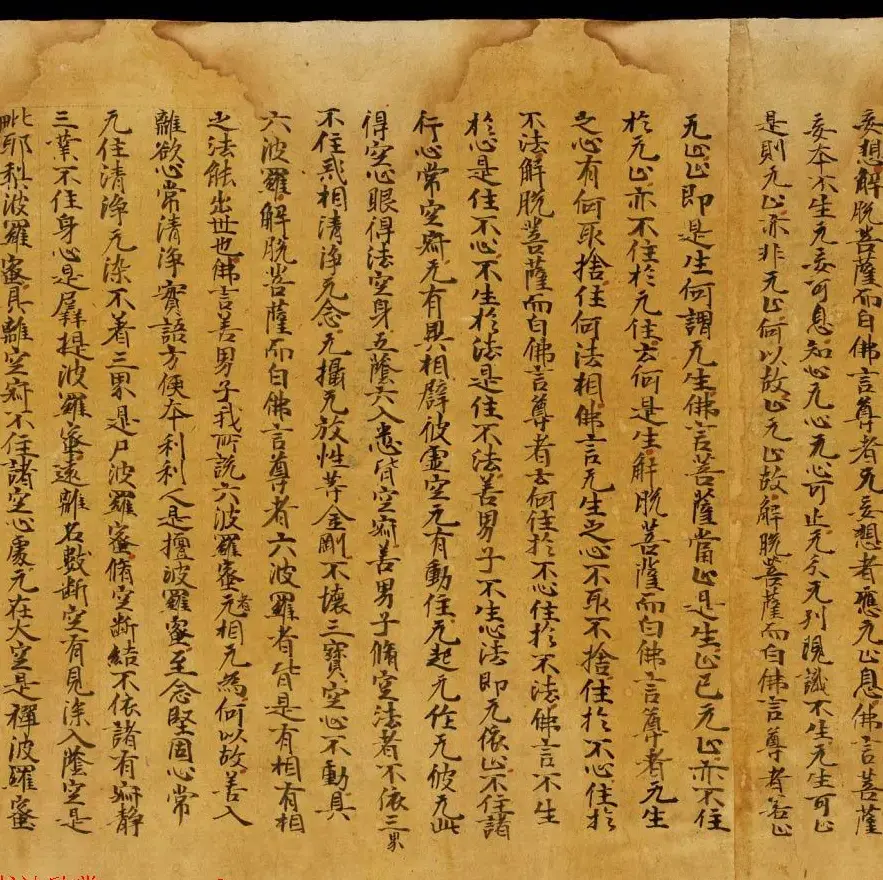 妄想解脱菩薩而白佛言尊者无妄想者應无止息佛言菩薩
妄本不生无妄可息知心无心无心可止无分无別現識不生无生可止
是則无止亦非无止何以故止无止故解脱菩薩而白佛言尊者若止
无止止即是生何謂无生佛言菩薩當止是生止已无止亦不住
於无止亦不住於无住云何是生解脱菩薩而白佛言尊者无生
之心有何取捨住何法相佛言无生之心不取不捨住於不心住於
不法解脱菩薩而白佛言尊者云何住於不心住於不法佛言不生
於心是住不心不生於法是住不法善男子不生心法即无依止不住諸
行心常空寂无有異相譬彼虚空无有動住无起无作无彼无此
得空心眼得法空身五蔭六入悉皆空寂善男子脩空法者不依三界
不住戒相清淨无念无攝无放性等金剛不壞三寶空心不動具
六波羅解脱菩薩而白佛言尊者六波羅者皆是有相有相
之法能出世也佛言善男子我所説六波羅蜜者无相无為何以故善入
離欲心常清淨實語方便本利利人是檀波羅蜜至念堅固心常
无住清淨无染不著三界是尸波羅蜜脩空斷結不依諸有寂靜
三業不住身心是羼提波羅蜜遠離名數斷空有見深入蔭空是
毗耶梨波羅蜜具離空寂不住諸空心處无在大空是禪波羅蜜